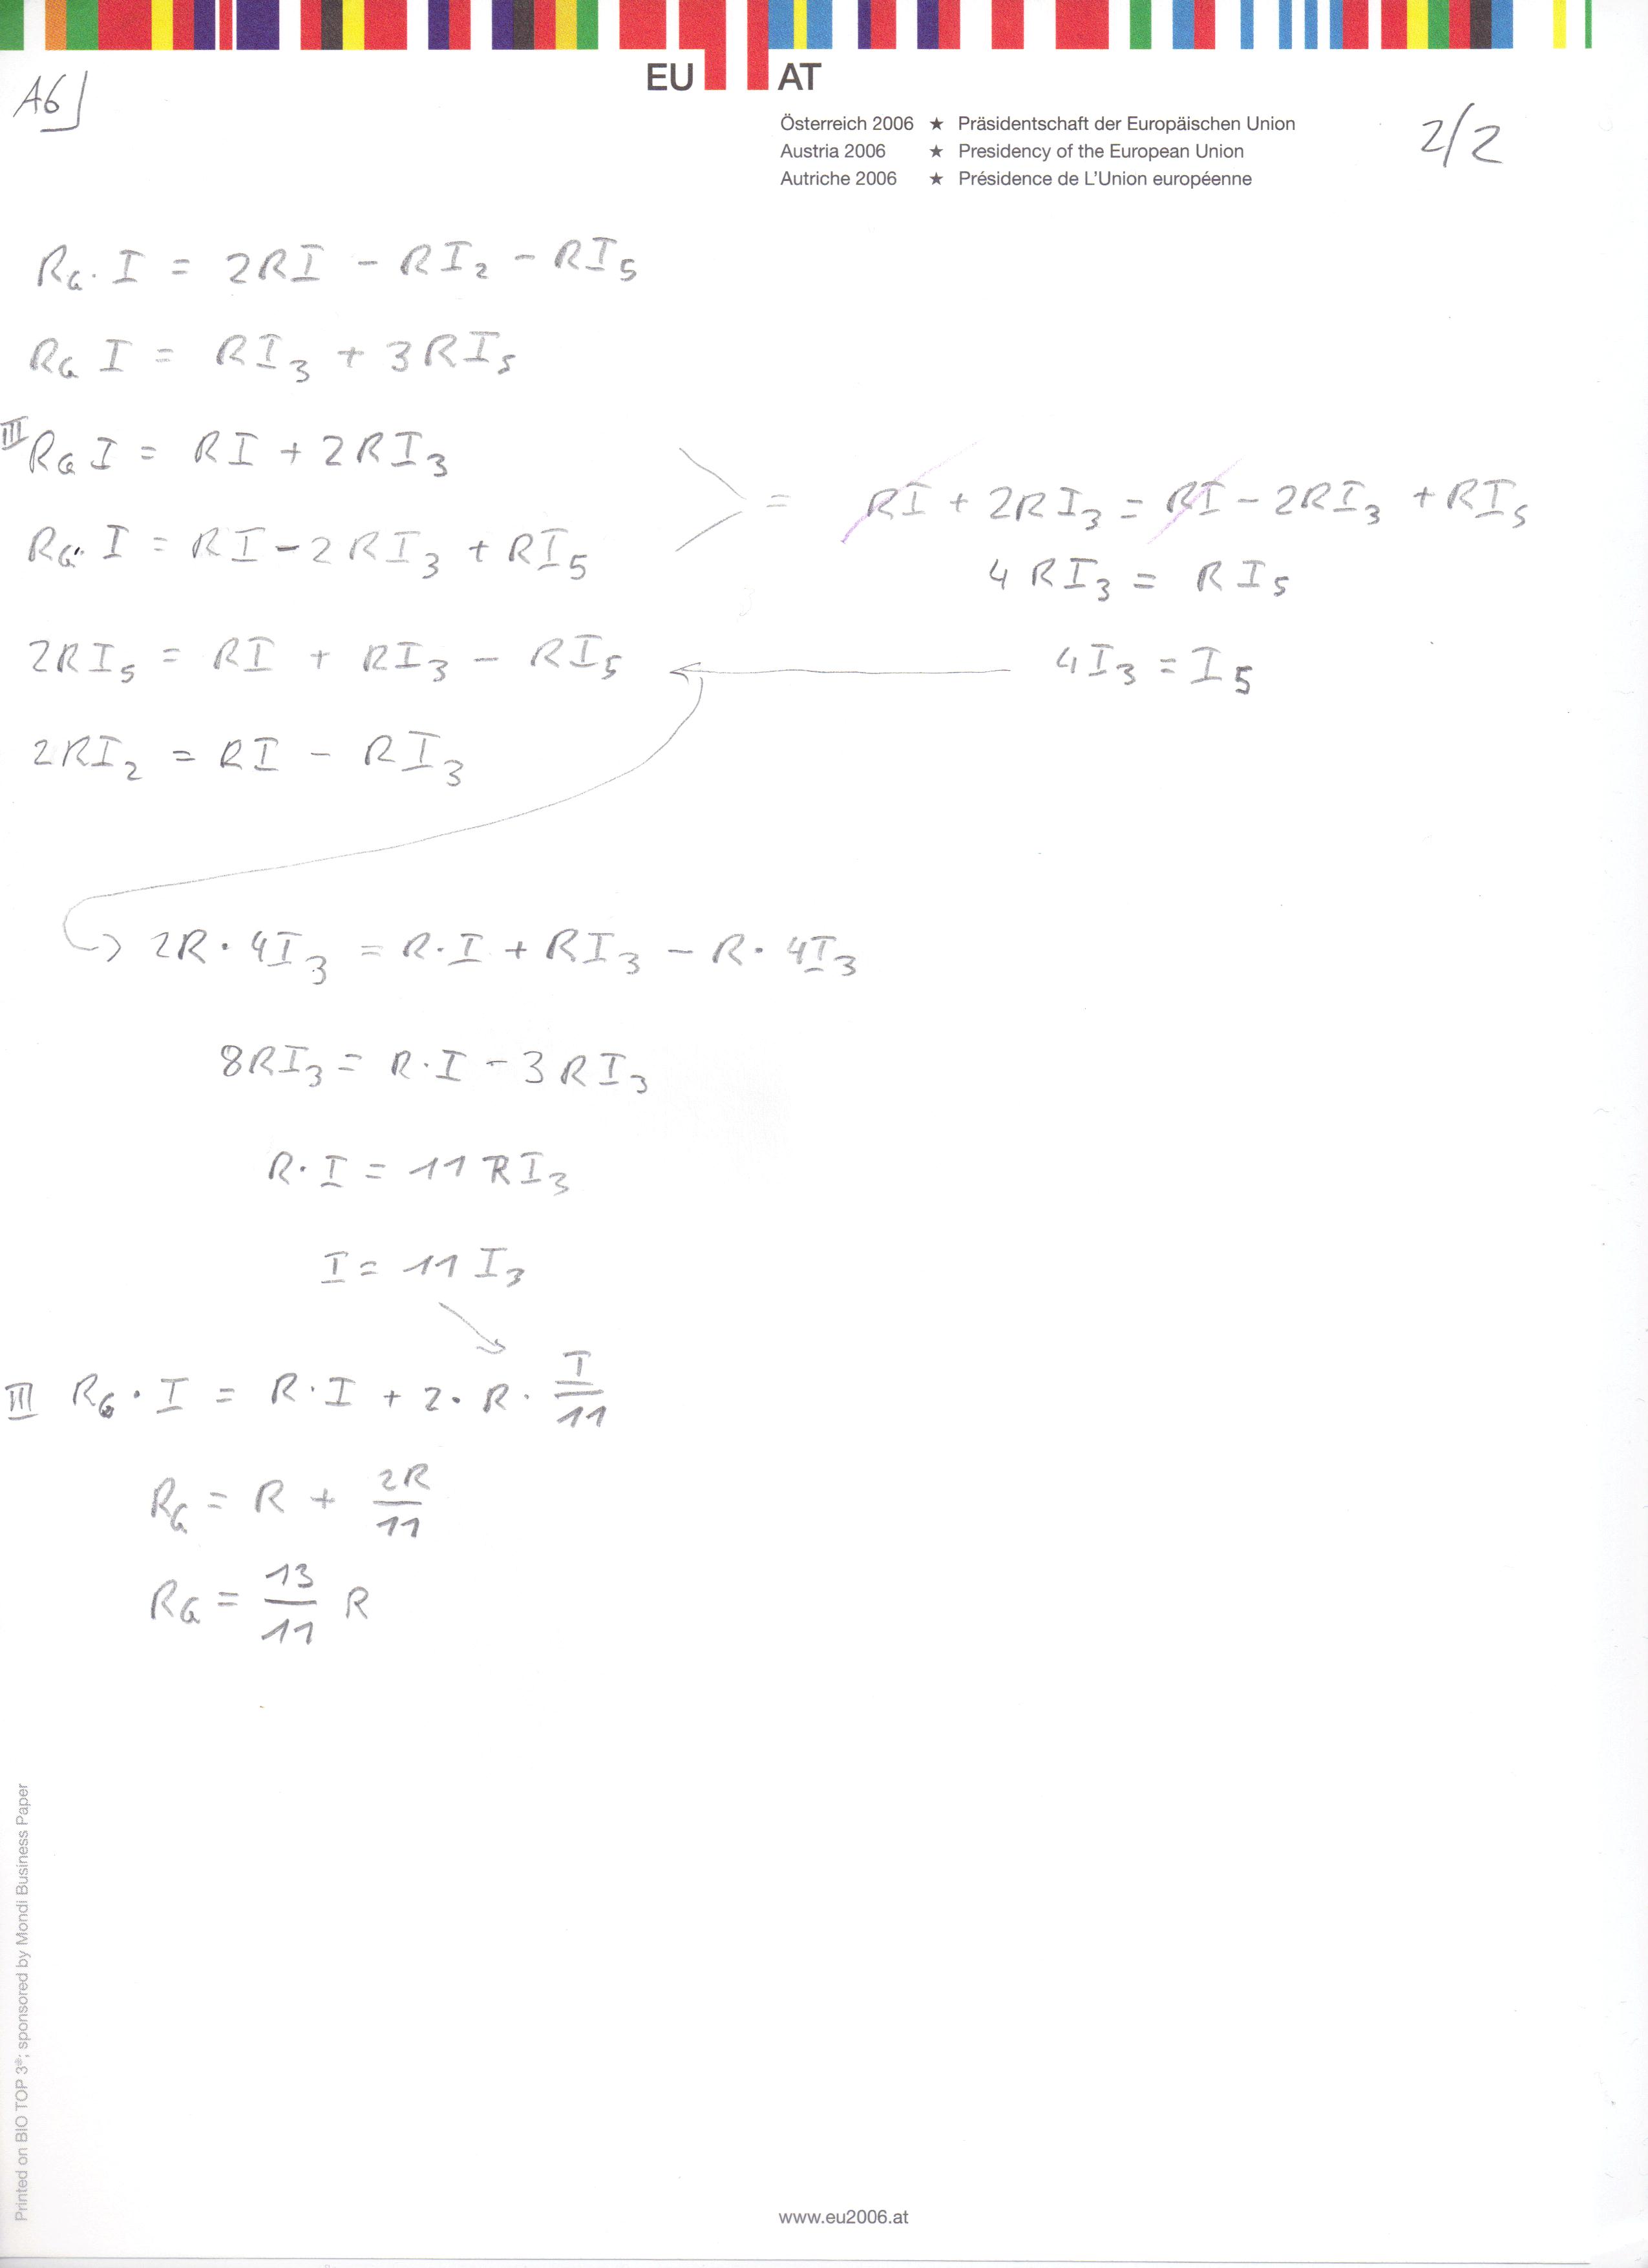 A6
EU AT
Österreich 2006 ★ Präsidentschaft der Europäischen Union
Austria 2006 ★ Presidency of the European Union
Autriche 2006 ★ Présidence de L'Union européenne
2/2
R_G · I = 2RI - RI₂ - RI₅
R_G I = RI₃ + 3RI₅
III R_G I = RI + 2RI₃
= RI + 2RI₃ = RI - 2RI₃ + RI₅
R_G · I = RI - 2RI₃ + RI₅
4RI₃ = RI₅
2RI₅ = RI + RI₃ - RI₅
4I₃ = I₅
2RI₂ = RI - RI₃
2R · 4I₃ = R · I + RI₃ - R · 4I₃
8RI₃ = R · I - 3RI₃
R · I = 11RI₃
I = 11I₃
III R_G · I = R · I + 2 · R · I/11
R_G = R + 2R/11
R_G = 13/11 R
Printed on BIO TOP 3®; sponsored by Mondi Business Paper
www.eu2006.at